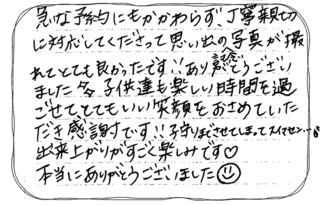 急な予約にもかかわらず、丁寧親切
に対応してくださって思い出の写真が撮
れてとても良かったです!!ありがとうござい
ました 子供達も楽しい時間を過
ごせてとてもいい笑顔をおさめていた
だき感謝です!!子守りまでさせてしまってスイマセン…
出来上がりがすごく楽しみです♡
本当にありがとうございました☺